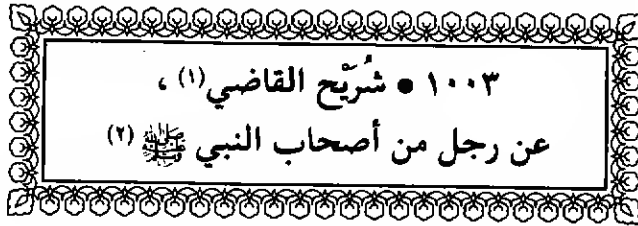 ١٠٠٣ • شُرَيْح القاضي(١) ،
عن رجل من أصحاب النبي ﷺ (٢)